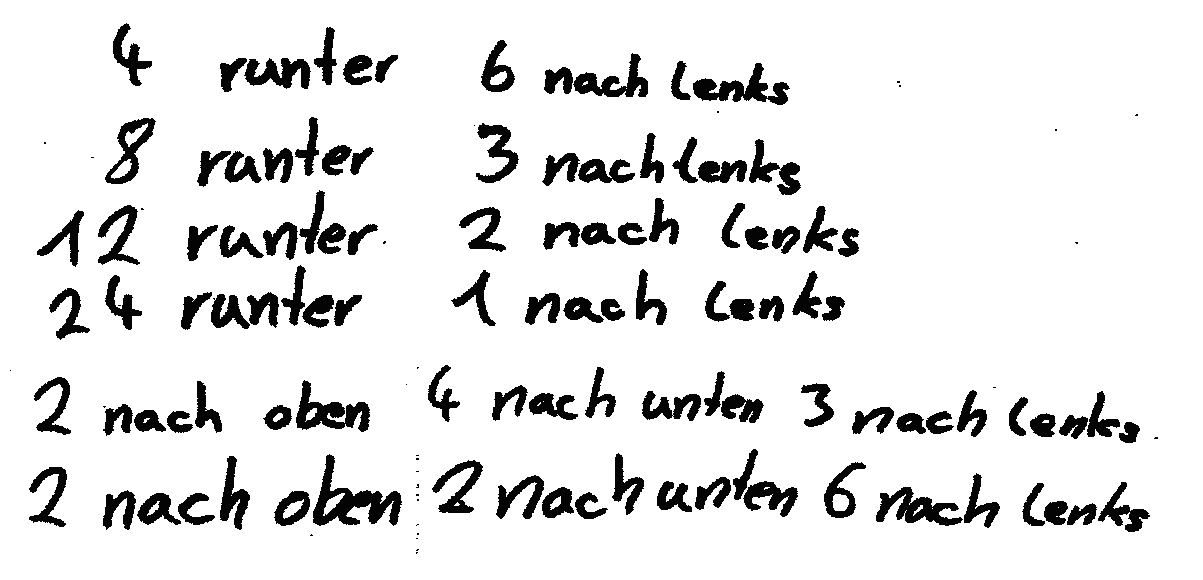 4 runter 6 nach lenks
8 runter 3 nach lenks
12 runter 2 nach lenks
24 runter 1 nach lenks
2 nach oben 4 nach unten 3 nach lenks
2 nach oben 2 nach unten 6 nach lenks